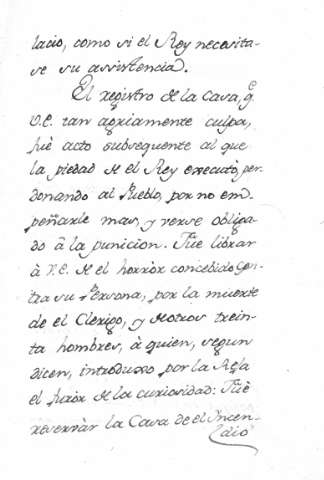 lacio, como si el Rey necesita-
se su assistencia.
El registro de la Casa, q.e
V.E. tan agriamente culpa,
fuè acto subsequente al que
la piedad de el Rey executò, per-
donando al Pueblo, por no em-
peñarle mas, y verse obliga-
do à la punicion. Fuè librar
à V.E. de el horror concebido con-
tra su Persona, por la muerte
de el Clerigo, y de otros trein-
ta hombres, à quien, segun
dicen, introduxo por la Reja
el furor de la curiosidad: Fuè
reservàr la Casa de el Incen-
dio